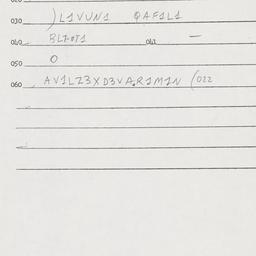 030 )L1VUN1 QAF1L1
040 BL7.0T1 042 —
050 O
060 AV1LZ3XD3VA,R1M1N (022